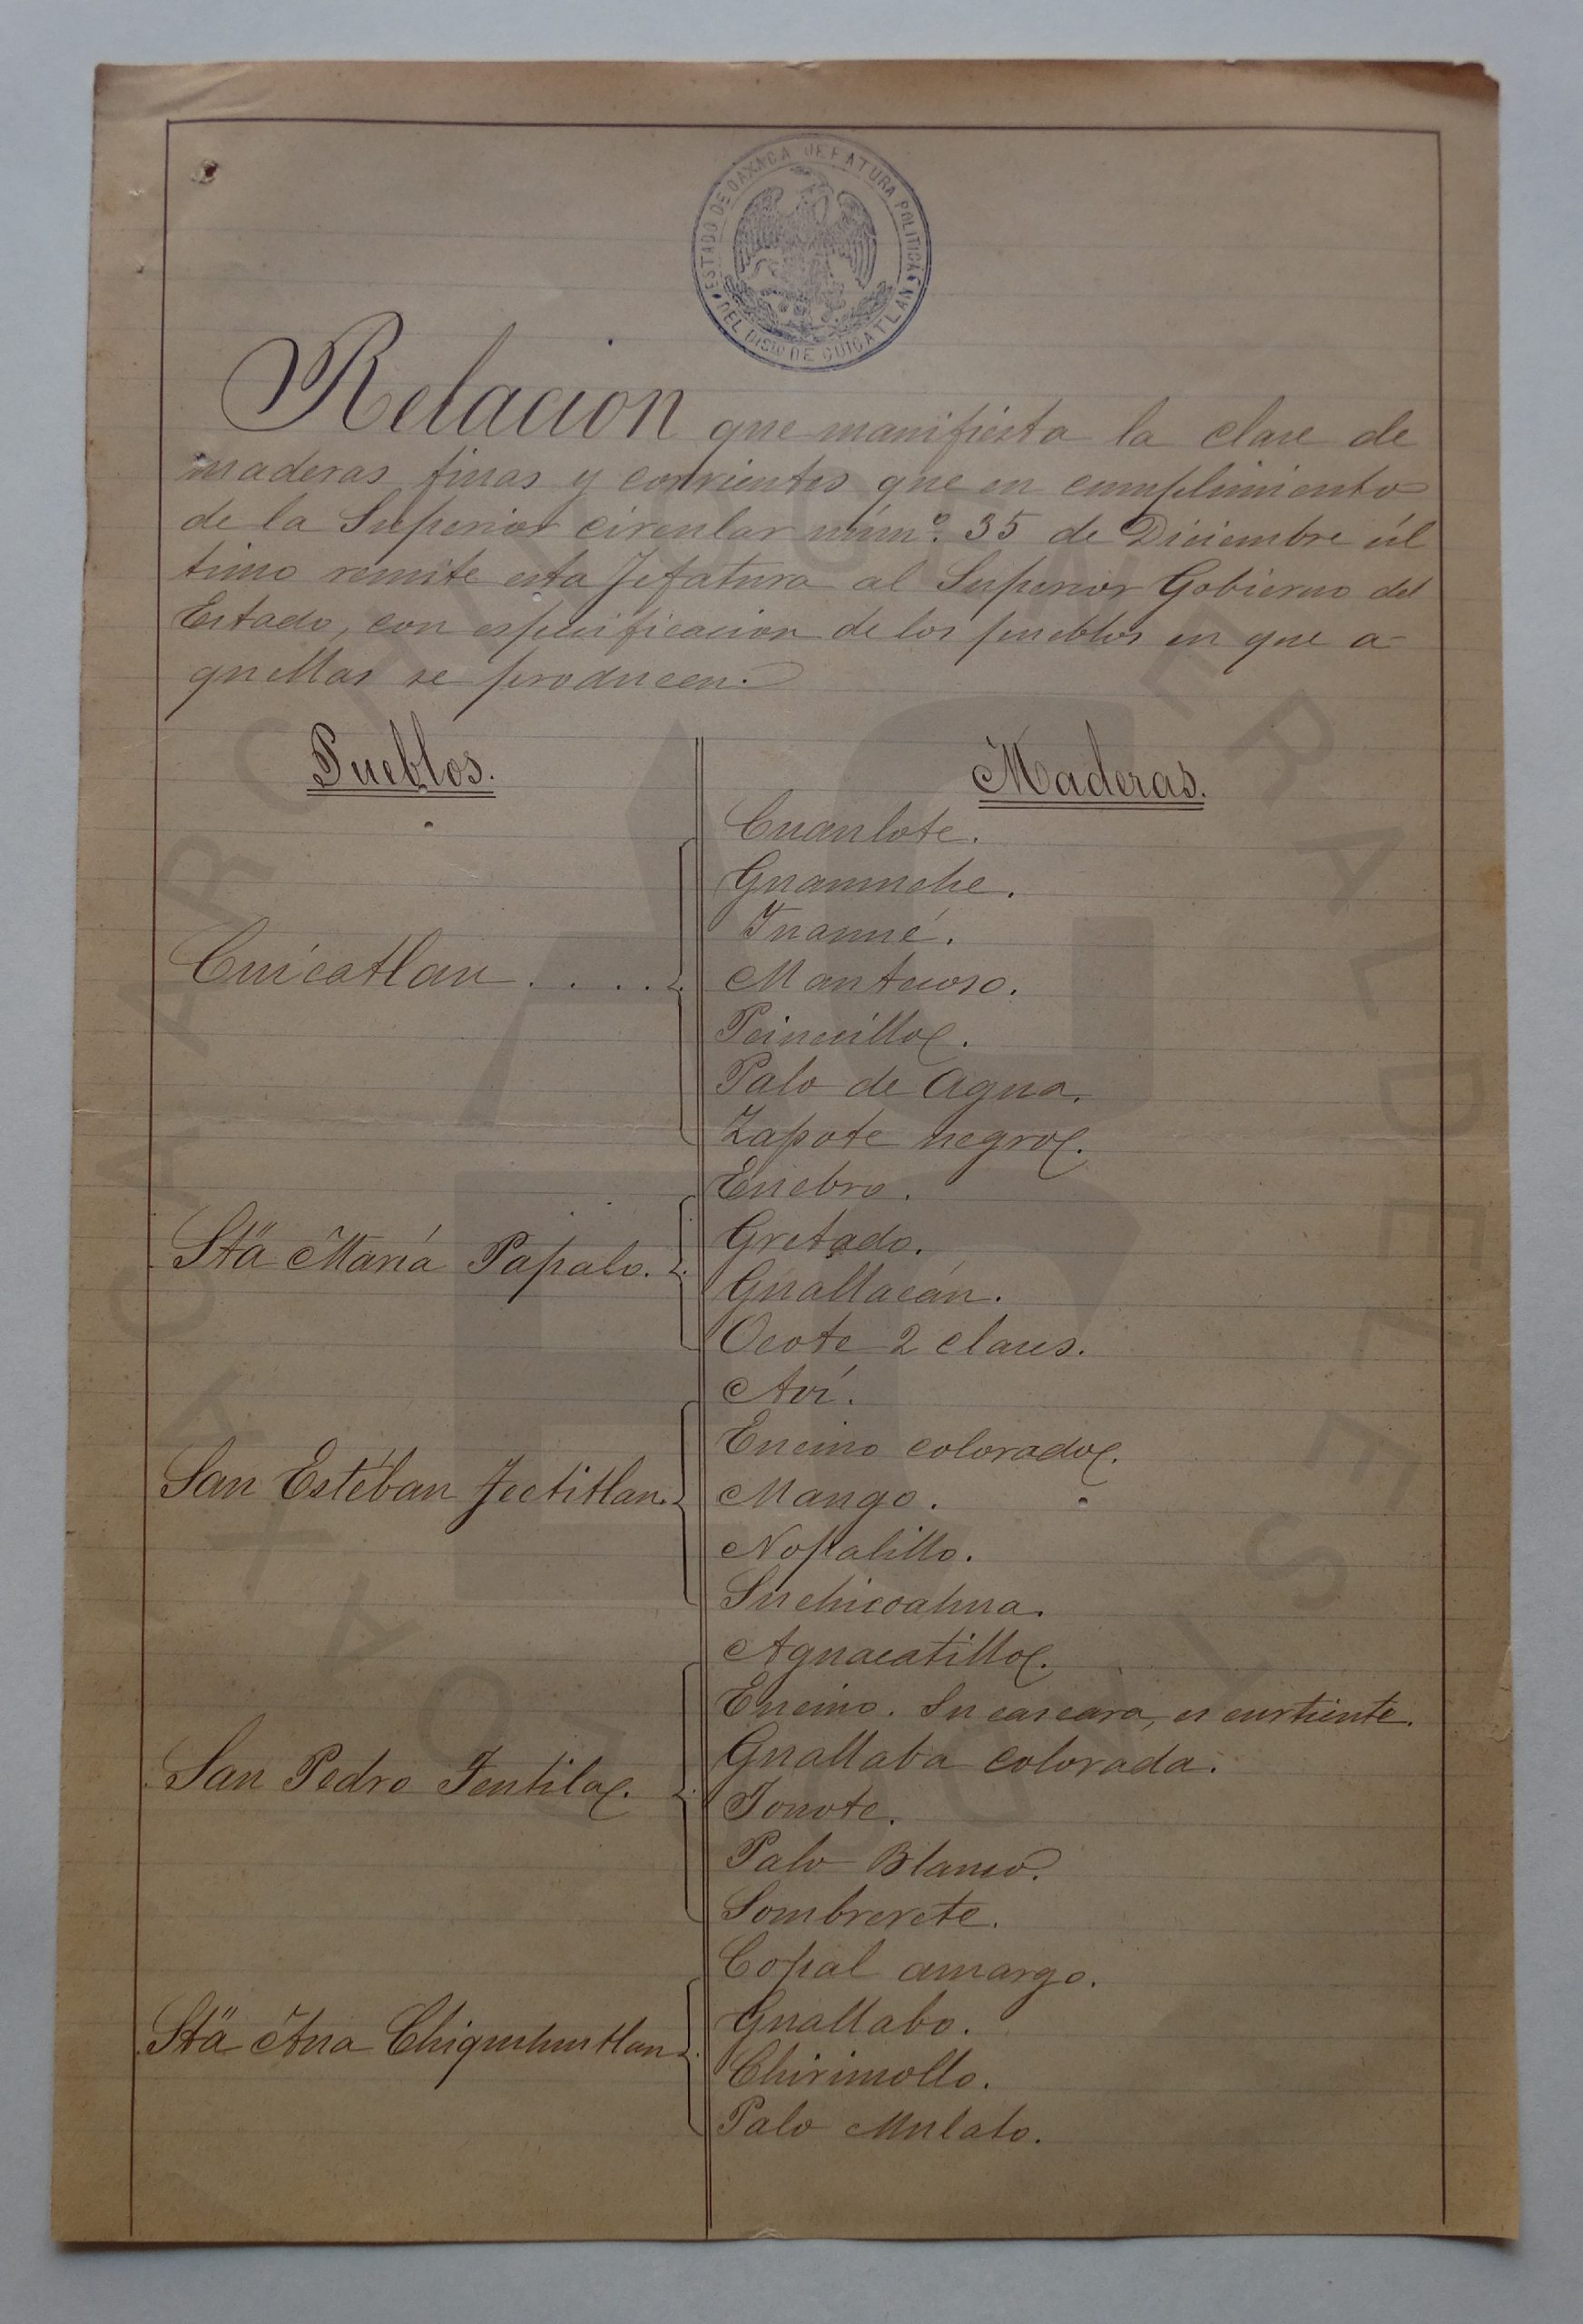 ESTADO DE OAXACA JEFATURA POLITICA
DEL DISTO DE CUICATLAN
Relacion que manifiesta la clase de
maderas finas y corrientes que en cumplimiento
de la Superior circular núm.º 35 de Diciembre úl
timo remite esta Jefatura al Superior Gobierno del
Estado, con especificacion de los pueblos en que a-
quellas se producen.
Pueblos.
Maderas.
Cuaulote.
Guamuche.
Cuicatlan . . . .
Mantecoso.
Peinecillo.
Palo de Agua.
Zapote negro.
Enebro.
Sta María Papalo.
Gretado.
Guallacán.
Ocote 2 clases.
San Estéban Tectitlan.
Encino colorado.
Mango.
Nopalillo.
Suchicoahua.
Aguacatillo.
Encino. Su cascara, es curtiente.
San Pedro Teutila.
Guallaba colorada.
Jonote.
Palo Blanco.
Sombrerete.
Copal amargo.
Sta Ana Chiquihuitlan
Guallabo.
Chirimollo.
Palo Mulato.
ARCHIVO GENERAL DEL ESTADO
OAXACA